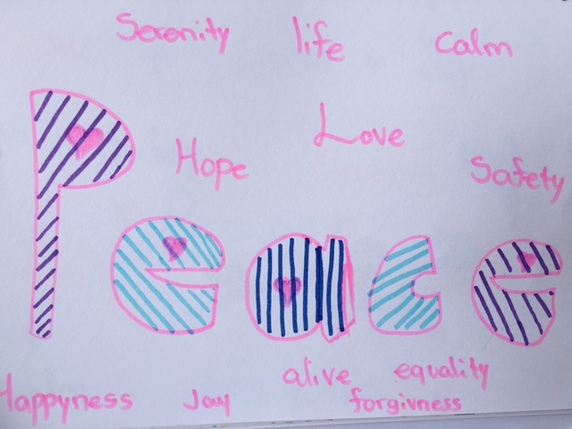 Serenity life Calm
Love
Hope Safety
Peace
alive equality
Happyness Joy forgivness